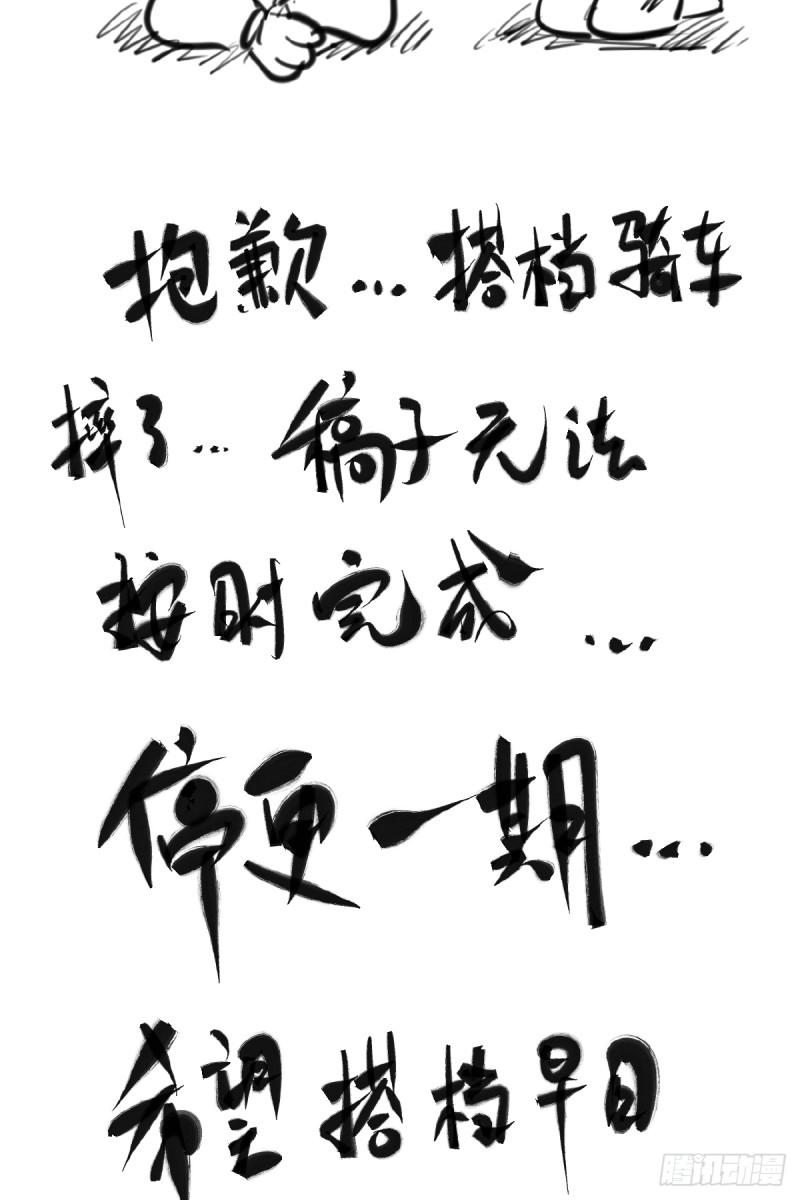 抱歉... 搭档骑车
摔了... 稿子无法
按时完成 ...
停更一期...
希望搭档早日
腾讯动漫